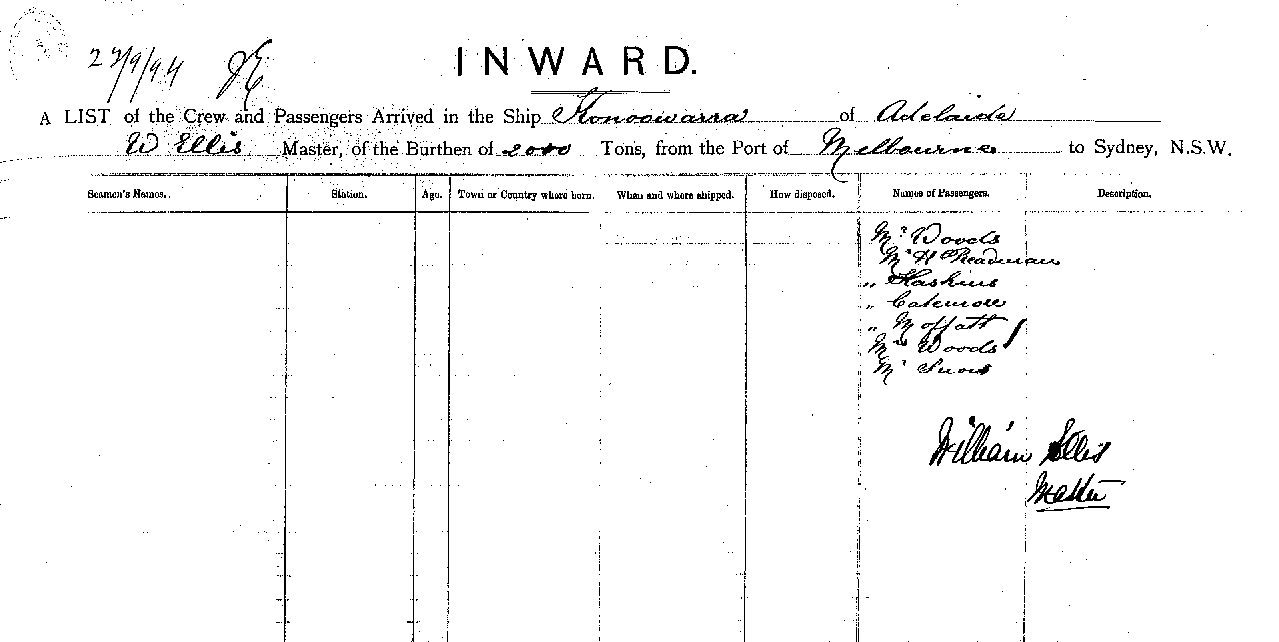 27/9/94 JE
INWARD.
A LIST of the Crew and Passengers Arrived in the Ship Konoowarra of Adelaide
W Ellis Master, of the Burthen of 2000 Tons, from the Port of Melbourne to Sydney, N.S.W.
Seamen's Names. Station. Age. Town or Country where born. When and where shipped. How disposed. Names of Passengers. Description.
Mr Woods
Mr H Readman
„ Haskins
„
„ Moffatt
Mrs Woods
Mr Snow
William Ellis
Master